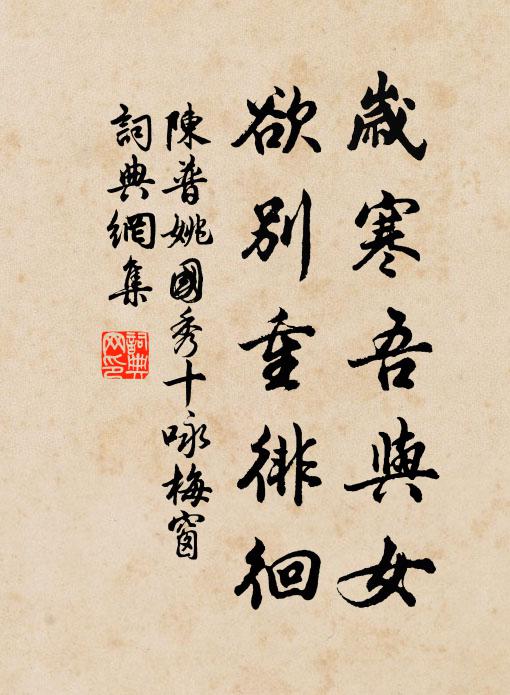 歲寒吾與女
欲別重徘徊
陳普姚國秀十咏梅窗
詞典網集
詞典网印